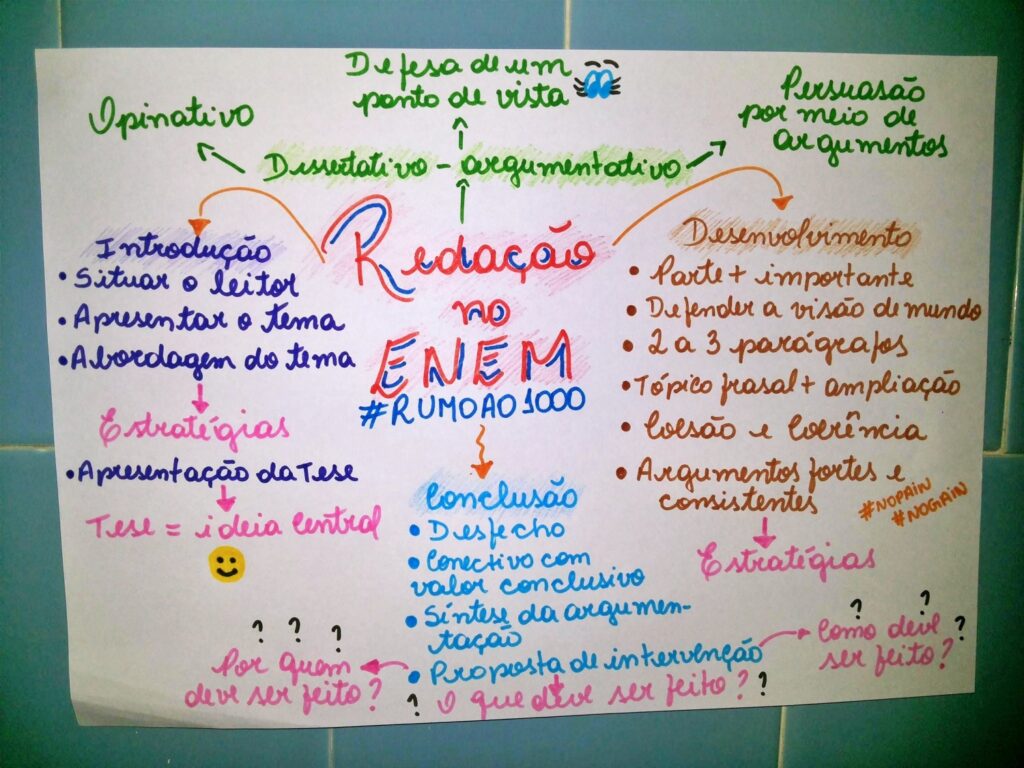 Defesa de um
ponto de vista
Opinativo
Persuasão
por meio de
argumentos
Dissertativo - argumentativo
Redação
no
ENEM
#RUMOAO1000
Introdução
• Situar o leitor
• Apresentar o tema
• Abordagem do tema
Estratégias
• Apresentação da Tese
Tese = ideia central
Desenvolvimento
• Parte + importante
• Defender a visão de mundo
• 2 a 3 parágrafos
• Tópico frasal + ampliação
• Coesão e Coerência
• Argumentos fortes e
consistentes
#NOPAIN
#NOGAIN
Estratégias
Conclusão
• Desfecho
• Conectivo com
valor conclusivo
• Síntese da argumen-
tação
• Proposta de intervenção
? ? ?
Por quem
deve ser feito?
? O que deve ser feito? ?
? ? ?
Como deve
ser feito?